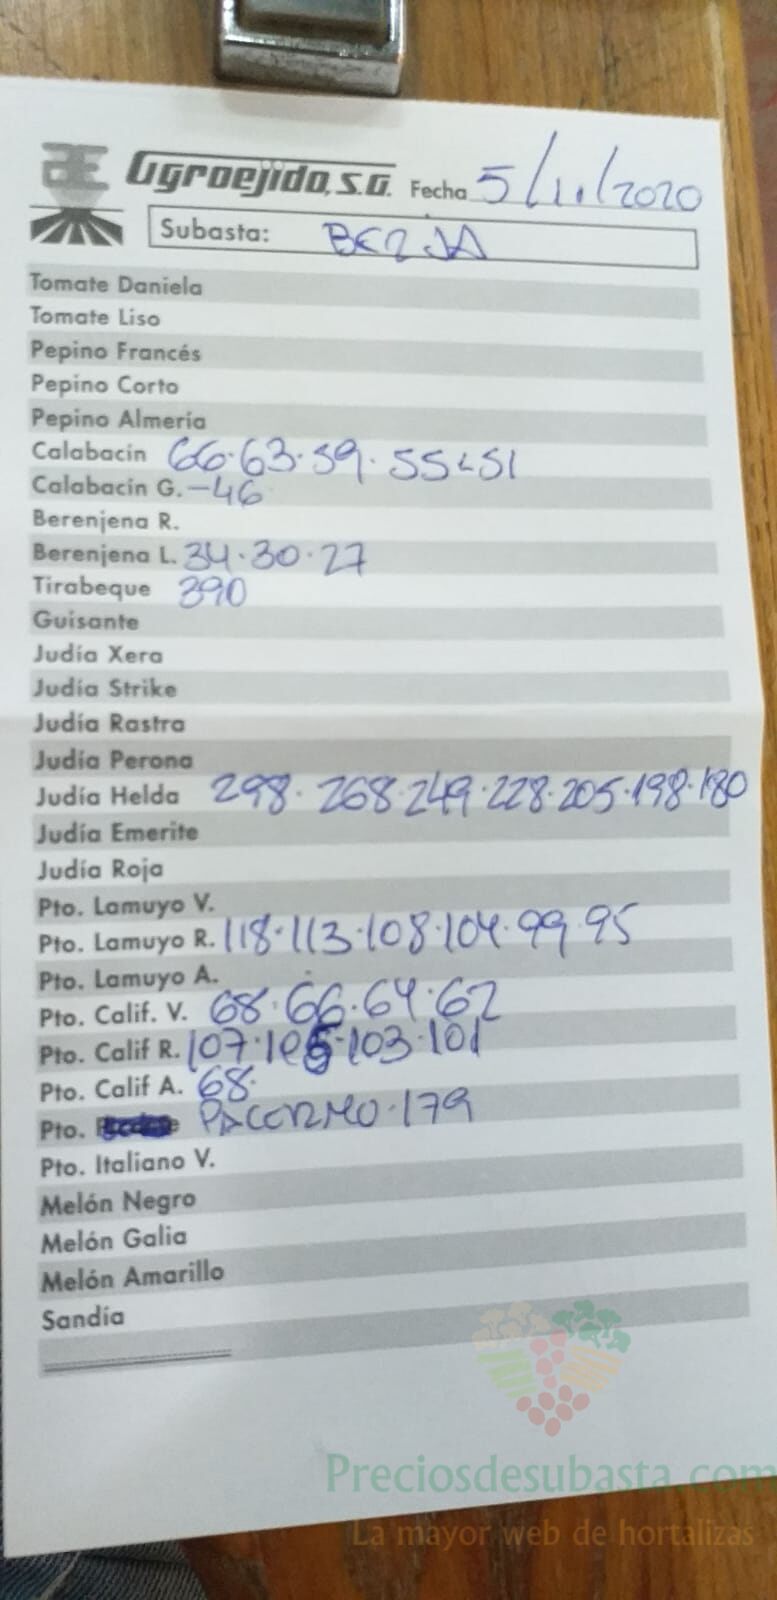 Agroejido, S.A. Fecha 5/11/2020
Subasta: BERJA
Tomate Daniela
Tomate Liso
Pepino Francés
Pepino Corto
Pepino Almería
Calabacín 66·63·59·55·51
Calabacín G. -46
Berenjena R.
Berenjena L. 34·30·27
Tirabeque 390
Guisante
Judía Xera
Judía Strike
Judía Rastra
Judía Perona
Judía Helda 298·268·249·228·205·198·180
Judía Emerite
Judía Roja
Pto. Lamuyo V.
Pto. Lamuyo R. 118·113·108·104·99·95
Pto. Lamuyo A.
Pto. Calif. V. 68·66·64·62
Pto. Calif R. 107·105·103·101
Pto. Calif A. 68·
Pto. PALERMO·179
Pto. Italiano V.
Melón Negro
Melón Galia
Melón Amarillo
Sandía
Preciosdesubasta.com
La mayor web de hortalizas